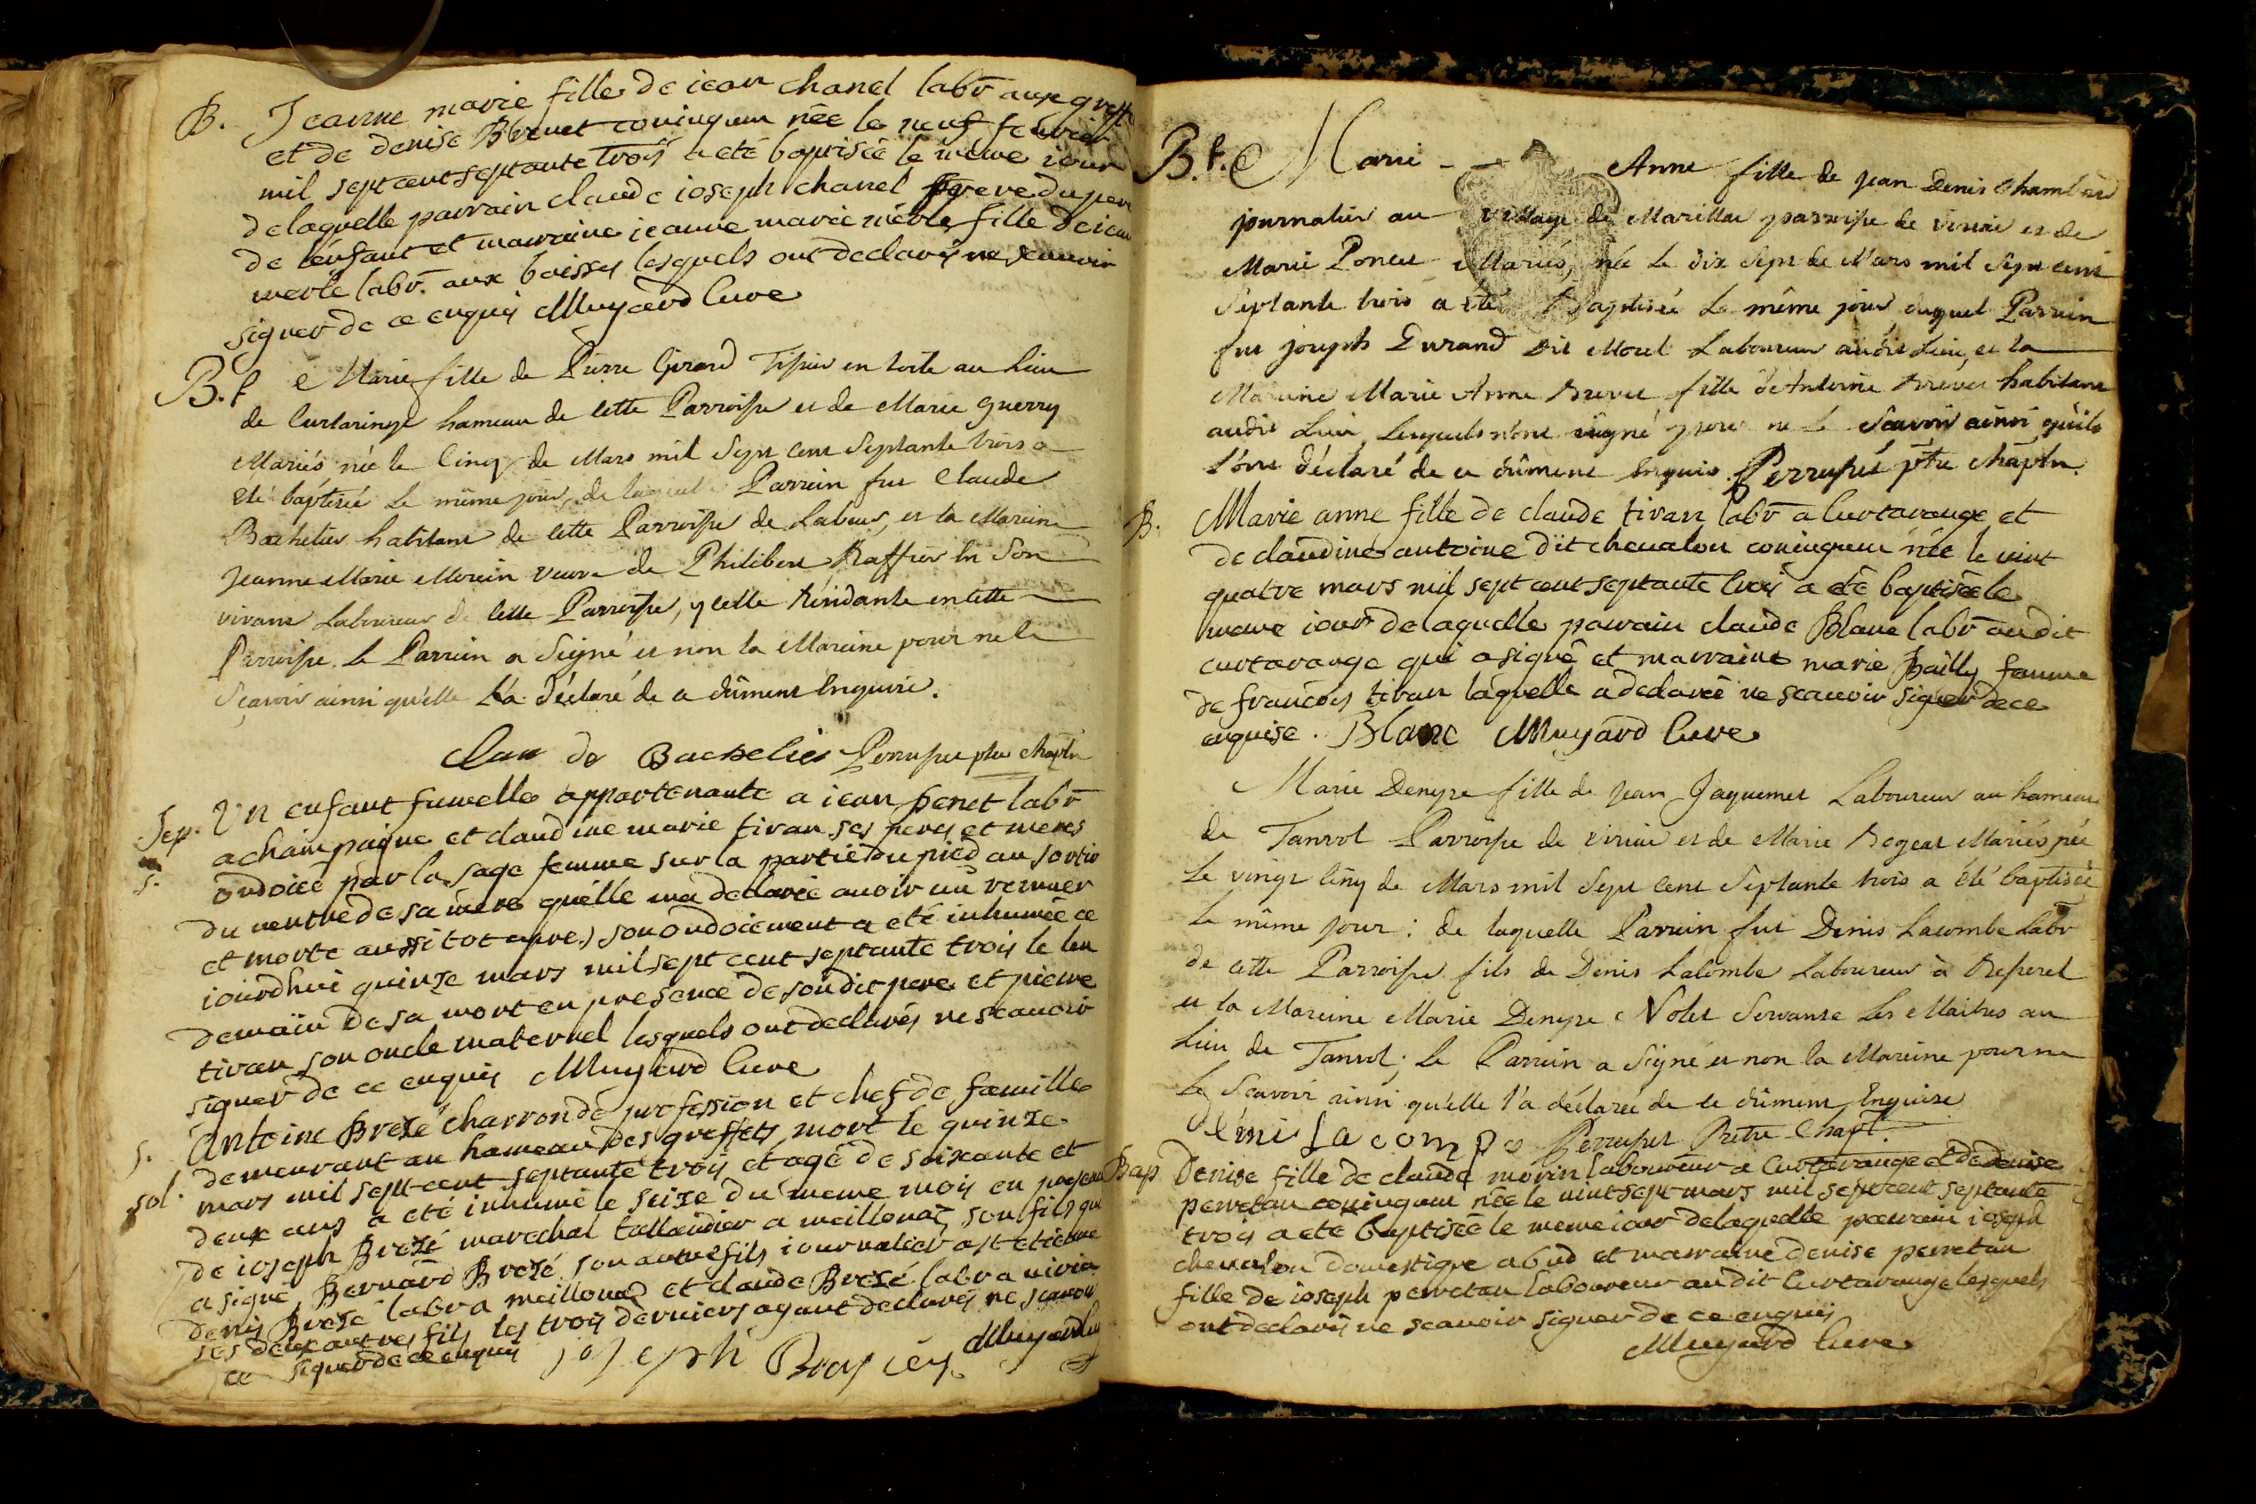 B. Jeanne marie fille de iean chanel labr aux
et de denise Brevet coniugum née le neuf fevrier
mil sept cent septante trois a eté baptisée le meme iour
de laquelle parrain claude ioseph chanel frere du pere
de l'enfant et marraine ieanne marie merle fille de iean
merle labr. aux boisses lesquels ont declarés ne scavoir
signer de ce enquis Muyard Cure
B. f Marie fille de Pierre Girard Tissier en toile au Lieu
de Curtaringe hameau de cette Parroisse et de Marie Guerry
Mariés née le Cinq de Mars mil Sept Cent Septante trois a
été baptisée le même jour, de laquelle Parrain fut Claude
Bachelier habitant de cette Parroisse de Labeur, et la Mareine
Jeanne Marie Morein veuve de Philibert Raffier en Son
vivant Laboureur de cette Parroisse, ycelle Résidante en cette
Parroisse. Le Parrein a Signé et non la Mareine pour ne le
Sçavoir ainsi qu'elle l'a déclaré de ce dûment Enquise.
Clau de Bachelier Perruset ptre chapln
Sep. Un enfant fumelle appartenante a iean penet labr
a champaigne et claudine marie tivan ses peres et meres
s. ondoiée par la sage femme sur la partie du pied au sortir
du ventre de sa mere quelle ma declarée avoir vu remuer
et morte aussi tot apres son ondoiement a eté inhumée ce
iourdhui quinze mars mil sept cent septante trois le len
demain de sa mort en presence de son dit pere et pierre
tivan son oncle maternel lesquels ont declarés ne scavoir
signer de ce enquis Muyard Cure
s. Antoine Brezé charron de profession et chef de famille
sol. demeurant au hameau des greffets mort le quinze
mars mil sept cent septante trois et agé de soixante et
deux ans a eté inhumé le seize du meme mois en presence
de ioseph Brezé marechal taillandier a meillonas son fils qui
a signé, Bernard Brezé son autre fils iournalier a st etienne
denis Brezé labr a meillonas et claude Brezé labr a viria
ses deux autres fils les trois derniers ayant declarés ne scavoir
signer de ce enquis joseph Muyard
B. f. Marie - - Anne fille de Jean Denis Chambard
journalier au village de Marillat parroisse de viriat et de
Marie Poncet Mariés, née le dix Sept de Mars mil Sept cent
Septante trois a été Baptisée le même jour duquel Parrein
fut joseph Durand dit Morel Laboureur audit Lieu, et la
Mareine Marie Anne Brevet fille d'Antoine Brevet habitant
audit Lieu, Lesquels n'ont signé pour ne le Scavoir ainsi qu'ils
l'ont déclaré de ce dûment Enquis. Perruset ptre chapln.
B. Marie anne fille de claude tivan labr a Curtarange et
de claudine antoine dit chevalon coniugum née le vint
quatre mars mil sept cent septante trois a eté baptisée le
meme iour de laquelle parrain claude Blanc labr au dit
curtarange qui a signé et marraine marie Bailly femme
de francois tivan laquelle a declarée ne scavoir signer de ce
enquise. Blanc Muyard Cure
Marie Denyse fille de Jean Jaquemet Laboureur au hameau
de Tanvol Parroisse de viriat et de Marie Bogeat Mariés née
le vingt Cinq de Mars mil Sept Cent Septante trois a été baptisée
le même jour : de laquelle Parrein fut Denis Lacombe Labr
de cette Parroisse fils de Denis Lacombe Laboureur à
et la Mareine Marie Denyse Nolet Servante Les Maitres au
Lieu de Tanvol ; le Parrein a Signé et non la Mareine pour ne
le Scavoir ainsi qu'elle l'a déclarée de ce dûment Enquise
deni la compe Perruset Prêtre Chapl.
Bap Denise fille de claude morin laboureur a Curtarange et de denise
perretan coniugum née le vint sept mars mil sept cent septante
trois a eté baptisée le meme iour de laquelle parrain ioseph
chevalon domestique a bud et marraine denise perretan
fille de ioseph perretan laboureur au dit Curtarange lesquels
ont declarés ne scavoir signer de ce enquis
Muyard Cure